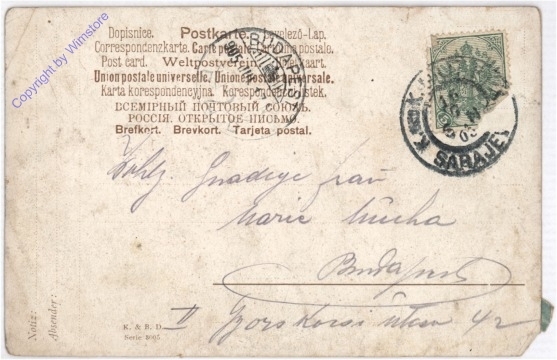 Copyright by Wimstore
Dopisnice. Postkarte. Levelező-Lap.
Correspondenzkarte. Carte postale. Cartolina postale.
Post card. Weltpostverein. Briefkaart.
Union postale universelle. Union postale universale.
Karta korrespondencyjna. Korespondenční lístek.
ВСЕМІРНЫЙ ПОЧТОВЫЙ СОЮЗЪ.
РОССІЯ. ОТКРЫТОЕ ПИСЬМО.
Brefkort. Brevkort. Tarjeta postal.
SARAJE
Gnädige Frau
Marie Mucha
Budapest
II
42
Notiz:
Absender:
K. & B. D.
Serie